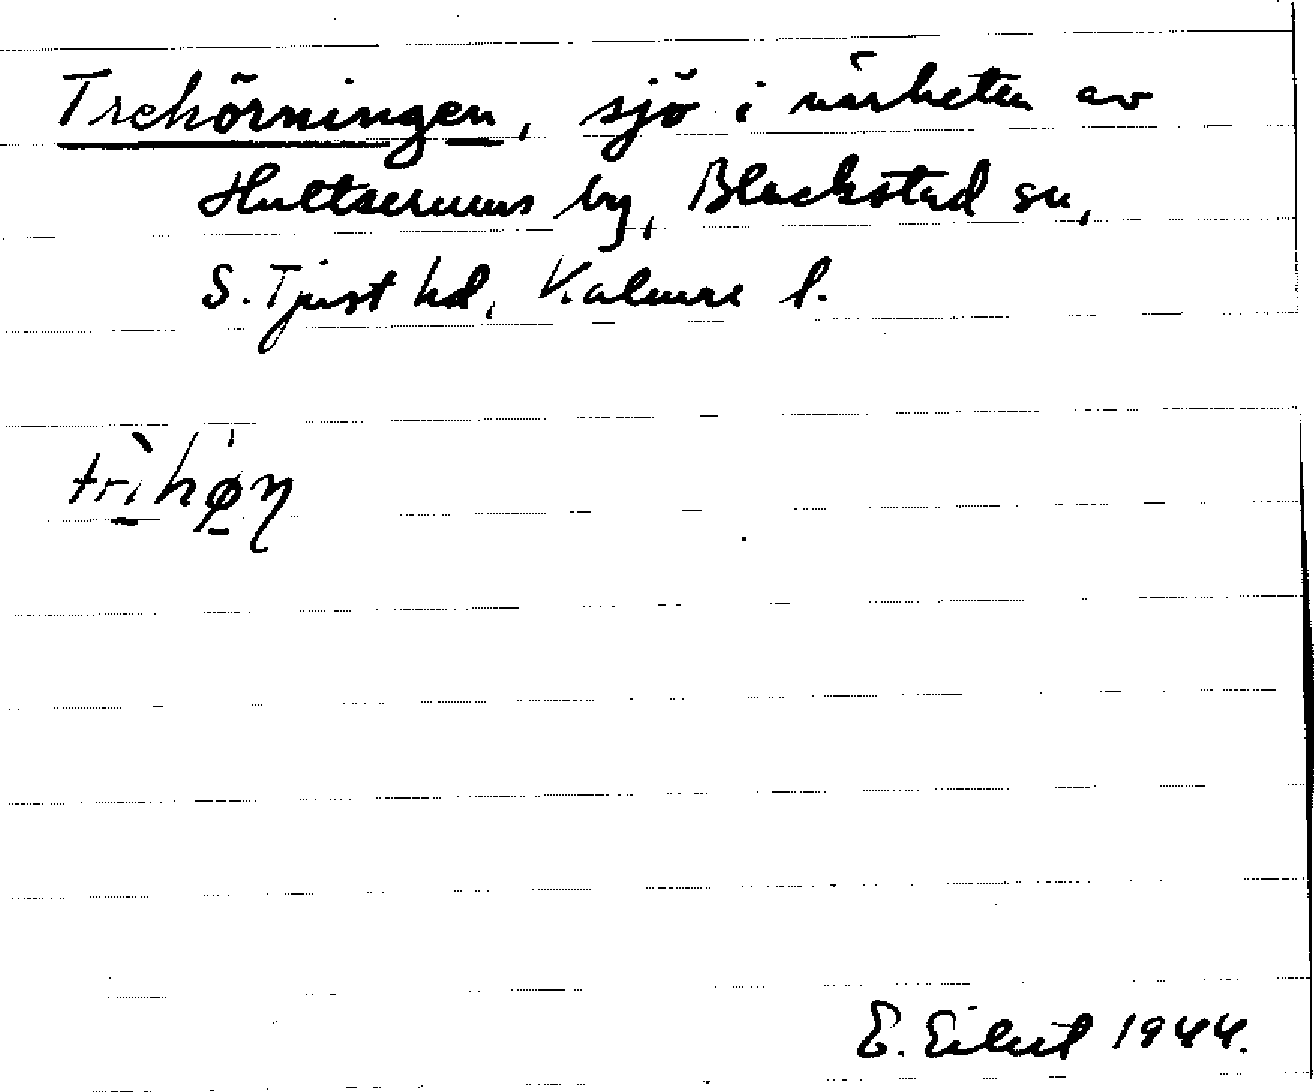 Trehörningen, sjö i närheten av
Hultserums by, Blackstad sn,
S. Tjust hd, Kalmar l.
trìhø̱ŋ
E. Eilert 1944.